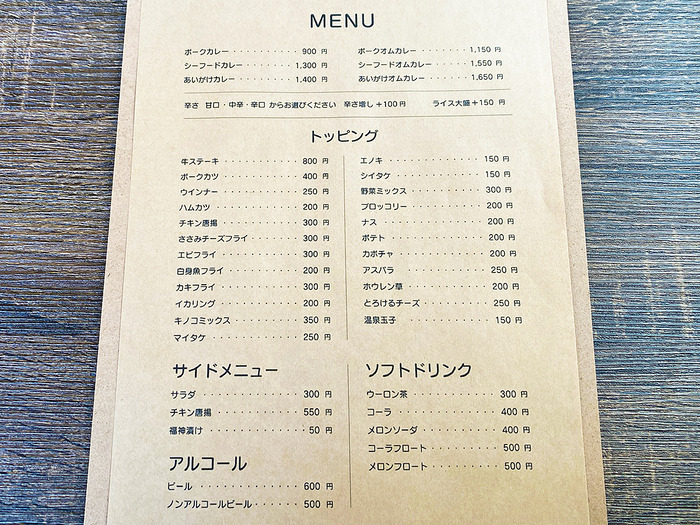 MENU
ポークカレー ・・・・・・・・・・ 900 円
シーフードカレー ・・・・・・・ 1,300 円
あいがけカレー ・・・・・・・・ 1,400 円
ポークオムカレー ・・・・・・・・ 1,150 円
シーフードオムカレー ・・・・・ 1,550 円
あいがけオムカレー ・・・・・・ 1,650 円
辛さ 甘口・中辛・辛口 からお選びください 辛さ増し +100円 ライス大盛 +150 円
トッピング
牛ステーキ ・・・・・・・・・・ 800 円
ポークカツ ・・・・・・・・・・ 400 円
ウインナー ・・・・・・・・・・ 250 円
ハムカツ ・・・・・・・・・・・ 200 円
チキン唐揚 ・・・・・・・・・・ 300 円
ささみチーズフライ ・・・・・・ 300 円
エビフライ ・・・・・・・・・・ 300 円
白身魚フライ ・・・・・・・・・ 200 円
カキフライ ・・・・・・・・・・ 300 円
イカリング ・・・・・・・・・・ 200 円
キノコミックス ・・・・・・・・ 350 円
マイタケ ・・・・・・・・・・・ 250 円
エノキ ・・・・・・・・・・・・ 150 円
シイタケ ・・・・・・・・・・・ 150 円
野菜ミックス ・・・・・・・・・ 300 円
ブロッコリー ・・・・・・・・・ 200 円
ナス ・・・・・・・・・・・・・ 200 円
ポテト ・・・・・・・・・・・・ 200 円
カボチャ ・・・・・・・・・・・ 200 円
アスパラ ・・・・・・・・・・・ 250 円
ホウレン草 ・・・・・・・・・・ 200 円
とろけるチーズ ・・・・・・・・ 250 円
温泉玉子 ・・・・・・・・・・・ 150 円
サイドメニュー
サラダ ・・・・・・・・・・・・ 300 円
チキン唐揚 ・・・・・・・・・・ 550 円
福神漬け ・・・・・・・・・・・ 50 円
アルコール
ビール ・・・・・・・・・・・・ 600 円
ノンアルコールビール ・・・・・・ 500 円
ソフトドリンク
ウーロン茶 ・・・・・・・・・・ 300 円
コーラ ・・・・・・・・・・・・ 400 円
メロンソーダ ・・・・・・・・・ 400 円
コーラフロート ・・・・・・・・ 500 円
メロンフロート ・・・・・・・・ 500 円